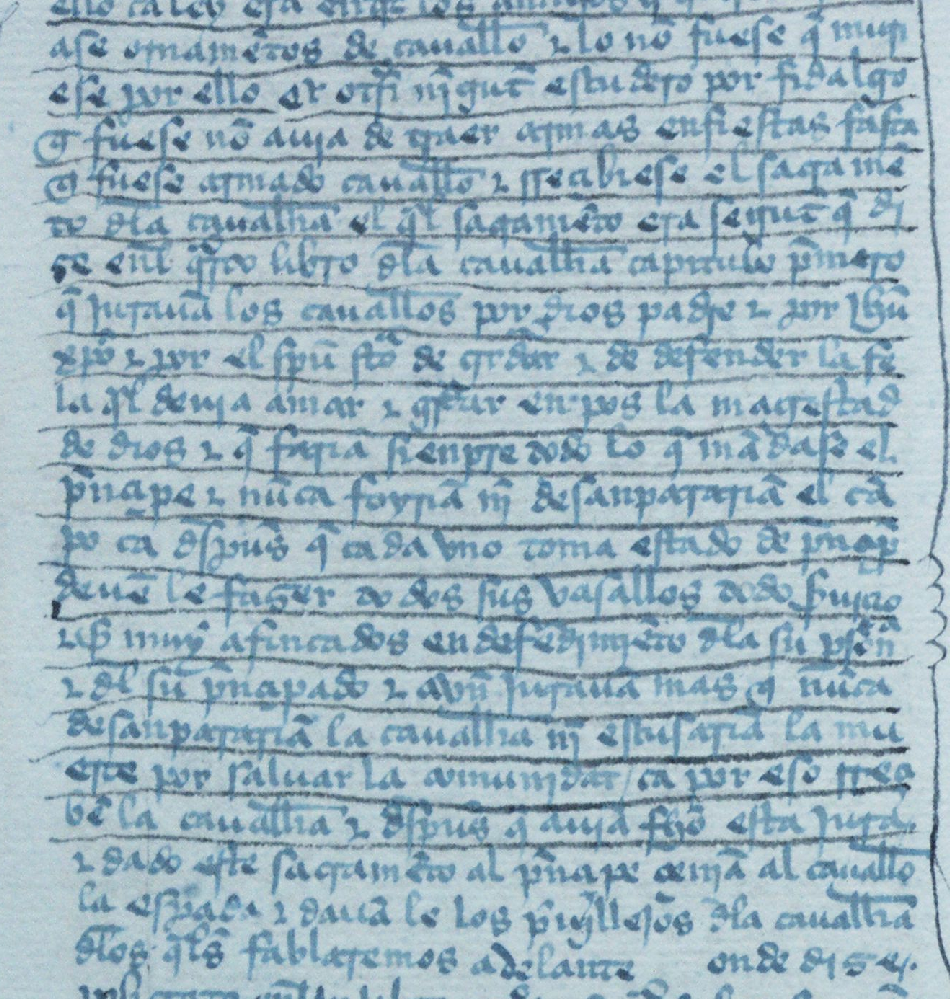 ase ornamẽtos de cauallo ⁊ lo nõ fuese q̃ muri
ese por ello et otrsi nĩgũt escudero por fidalgo
q̃ fuese nõ auia de traer armas enfiestas fasta
q̃ fuese armado cauallo ⁊ rrecibiese el sacramẽ
to dla cauallria el ql sacramẽto era segunt q̃ di
se enl qrto libro dla cauallria capitulo pmero
q̃ jurauã los caualleros por dios padre ⁊ por jhũ
xpõ ⁊ por el spũ stõ de grdar ⁊ de defender la fe
la ql deuia amar ⁊ grdar enpos la magestad
de dios ⁊ q̃ fariã sienpre todo lo q̃ mãdase el
pncipe ⁊ nũca foyriã nĩ desanparariã el cã
po ca dspues q̃ cada vno toma estado de pncipe
deuẽ le faser todos sus vasallos todo suicio
muy afincados en defẽdimiẽto dla su psona
⁊ dl su pncipado ⁊ avn jurauã mas q̃ nũca
desanparariã la cauallria nĩ escusariã la mu
erte por saluar la comunidat / ca por eso rreçi
bẽ la cauallria ⁊ dspues q̃ auiã fho esta jura
⁊ dado este sacramẽto al pncipe ceniã al cauallo
la espada ⁊ dauã le los preuillejos dla cauallria
dlos qls fablaremos adelante onde dise